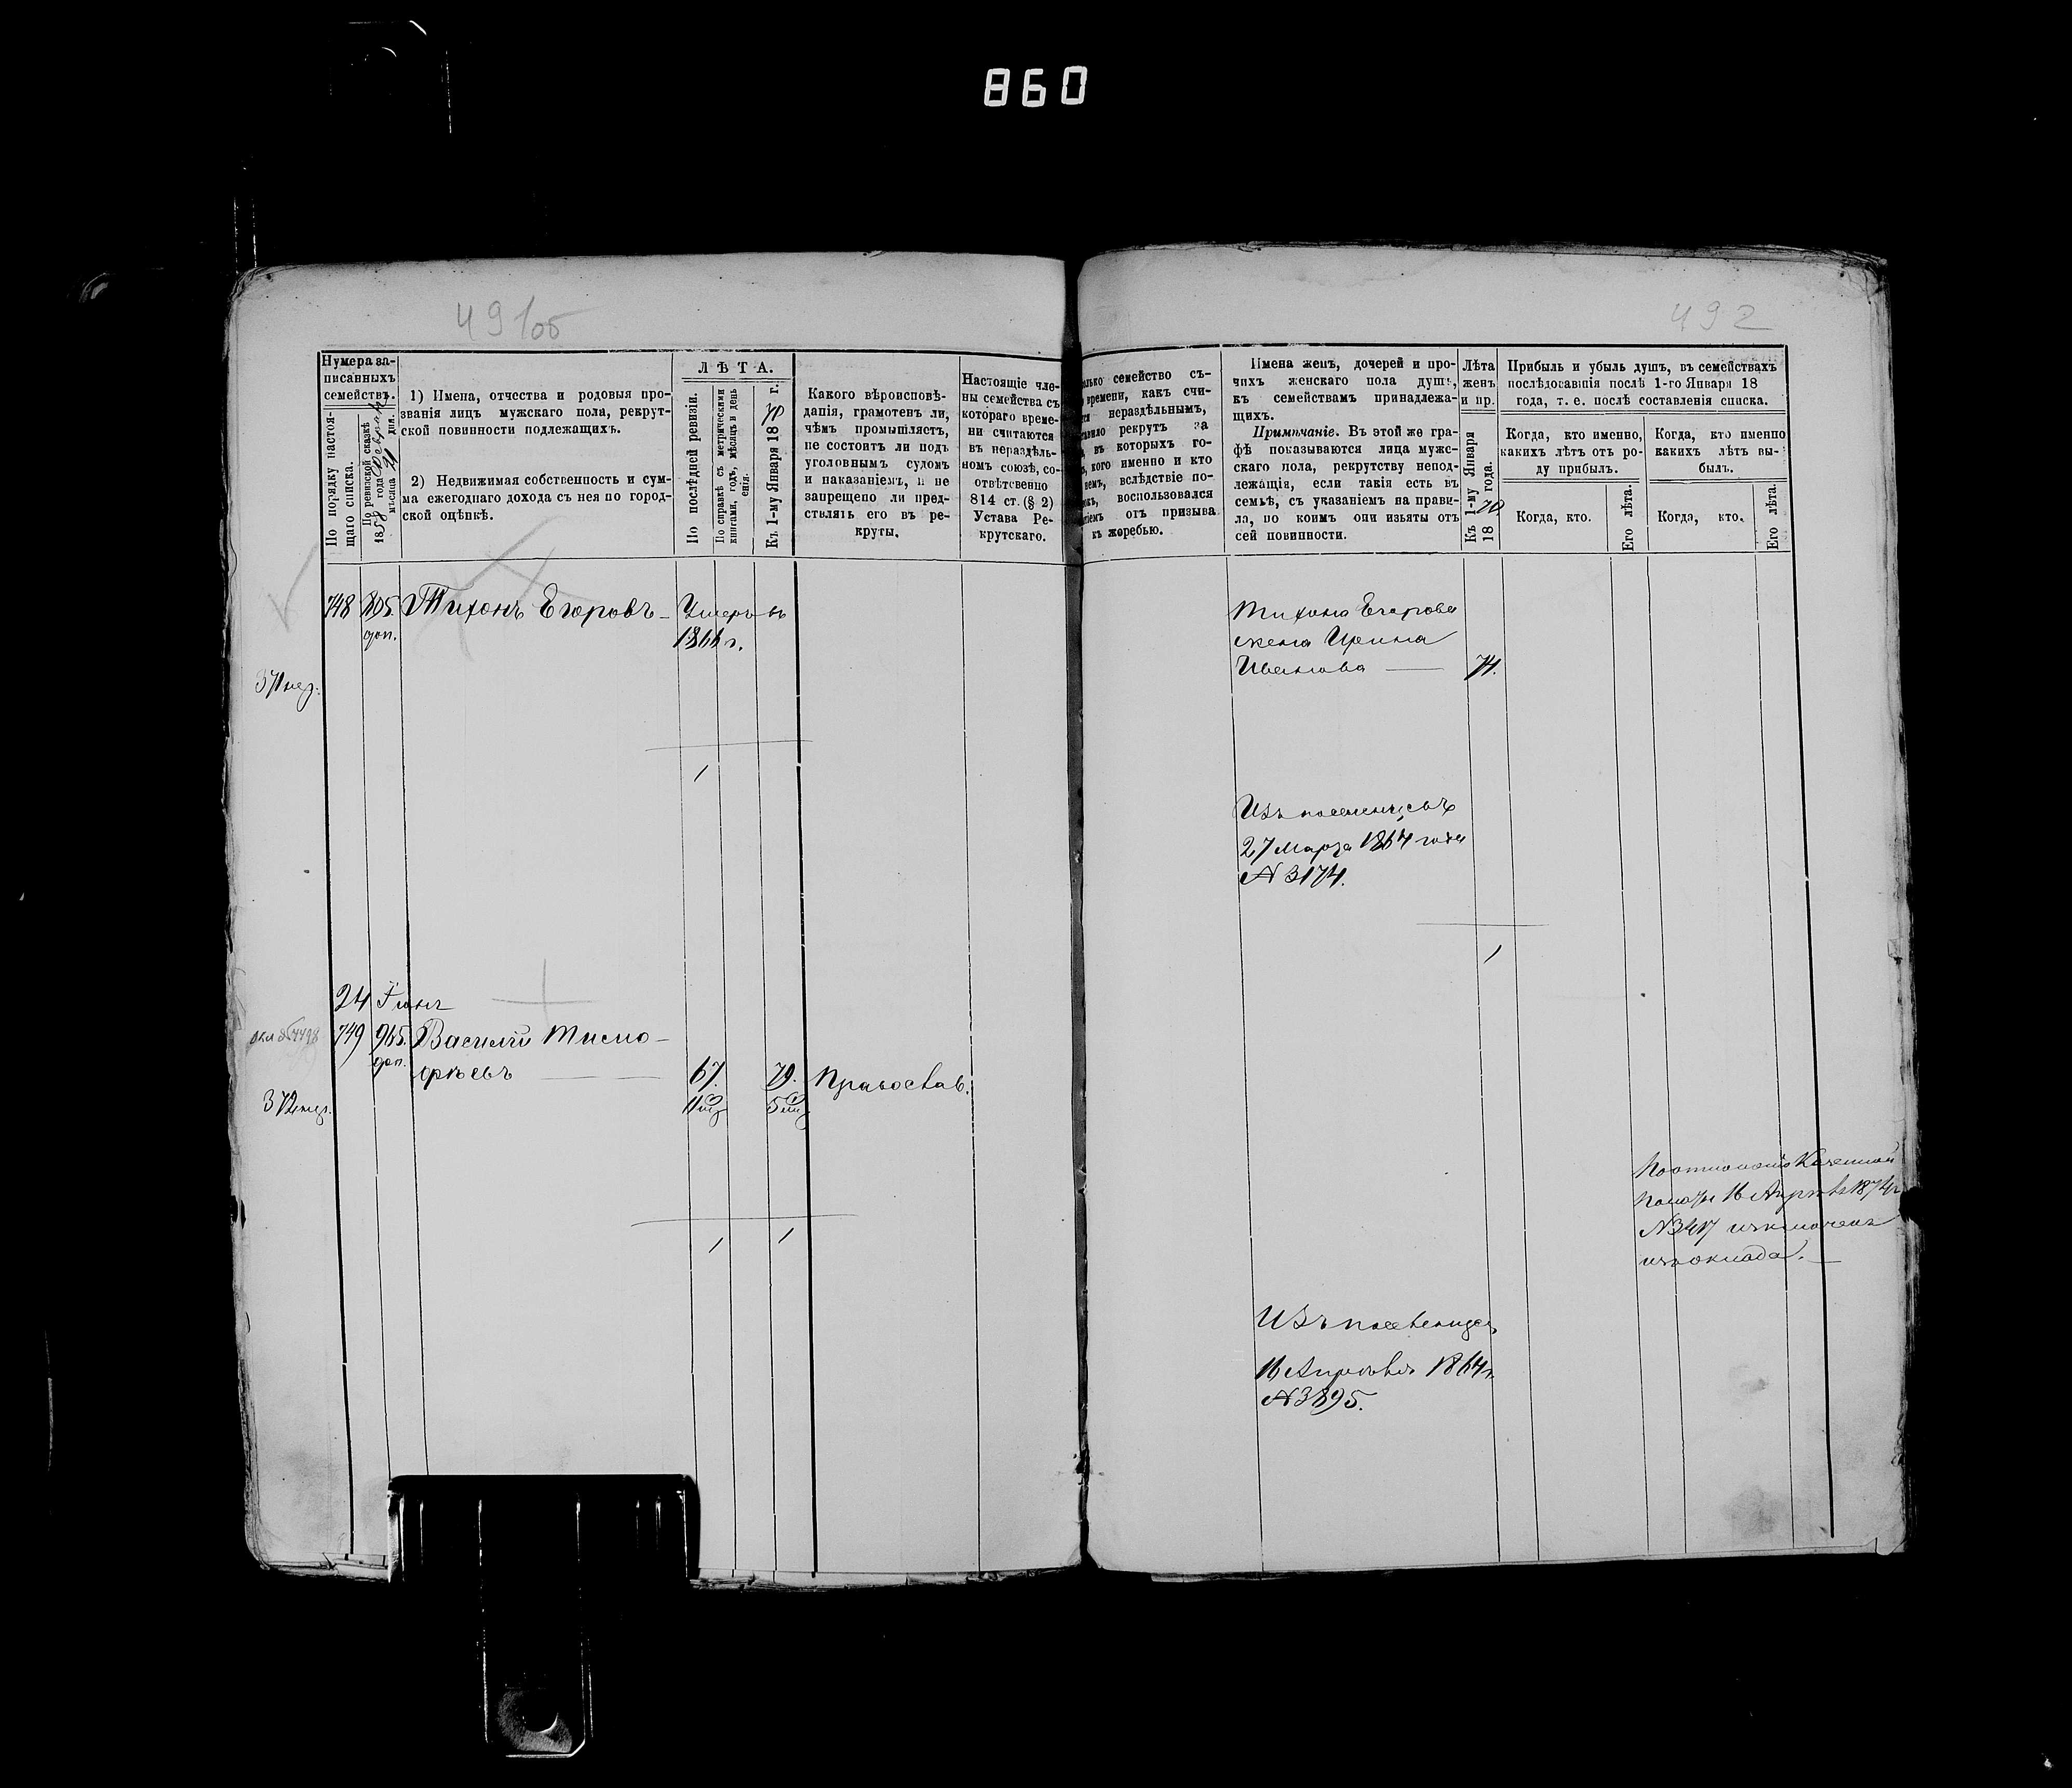 860
491об
492
Нумера за-
писанныхъ
семействъ.
По порядку настоя-
щаго списка.
По ревизской сказкѣ
1858 года Февраля
мѣсяца 21 дня.
1) Имена, отчества и родовыя про-
званія лицъ мужскаго пола, рекрут-
ской повинности подлежащихъ.
2) Недвижимая собственность и сум-
ма ежегоднаго дохода съ нея по город-
ской оцѣнкѣ.
ЛѢТА.
По послѣдней ревизіи.
По справкѣ съ метрическими
книгами, годъ, мѣсяцъ и день
енія.
Къ 1-му Января 1870 г.
Какого вѣроисповѣ-
данія, грамотенъ ли,
чѣмъ промышляетъ,
не состоитъ ли подъ
уголовнымъ судомъ
и наказаніемъ, и не
запрещено ли пред-
ставлять его въ ре-
круты.
Настоящіе чле-
ны семейства съ
котораго време-
ни считаются
въ нераздѣль-
номъ союзѣ, со-
отвѣтственно
814 ст. (§ 2)
Устава Ре-
крутскаго.
семейство съ-
времени, какъ счи-
нераздѣльнымъ,
рекрутъ за
въ которыхъ го-
кого именно и кто
вслѣдствіе по-
воспользовался
отъ призыва
къ жеребью.
Имена женъ, дочерей и про-
чихъ женскаго пола душъ,
къ семействамъ принадлежа-
щихъ.
Примѣчаніе. Въ этой же гра-
фѣ показываются лица муже-
скаго пола, рекрутству непод-
лежащія, если такія есть въ
семьѣ, съ указаніемъ на прави-
ла, по коимъ они изъяты отъ
сей повинности.
Лѣта
женъ
и пр.
Къ 1-му Января
1870 года.
Прибыль и убыль душъ, въ семействахъ
послѣдовавшія послѣ 1-го Января 18
года, т. е. послѣ составленія списка.
Когда, кто именно,
какихъ лѣтъ отъ ро-
ду прибылъ.
Когда, кто именно
какихъ лѣтъ вы-
былъ.
Когда, кто.
Его лѣта.
Когда, кто.
Его лѣта.
748 805. Тихонъ Егоровъ Умеръ въ
доп. 1866 г.
371
1
Тихона Егорова
жена Ирина
Иванова 74.
Изъ поселенцевъ
27 Марта 1864 года
№ 3174.
1
24 Іюня
749 965. Василій Тимо-
доп. фѣевъ 67. 79. Православ.
372
1 1
Казенной
Палаты 16 Апрѣля 1874 г
№ 3417 исключенъ
изъ оклада.
Изъ поселенцевъ
16 Апрѣля 1864 г.
№ 3895.